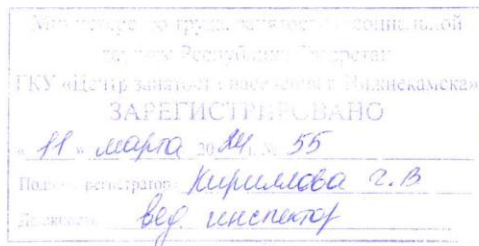 Министерство труда, занятости и социальной
защиты Республики Татарстан
ГКУ «Центр занятости населения г. Нижнекамска»
ЗАРЕГИСТРИРОВАНО
« 11 » марта 2024 г. № 55
Подпись регистратора Кириллова Г.В
Должность вед. инспектор